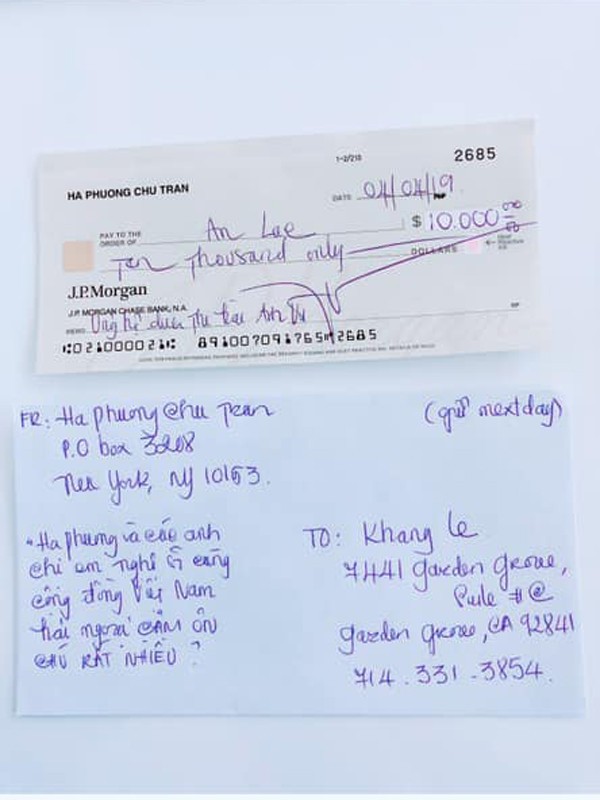 1-2/210
2685
HA PHUONG CHU TRAN
DATE 04/04/19
PAY TO THE ORDER OF An Lac $ 10.000 00/00
Ten Thousand only DOLLARS
J.P.Morgan
J.P. MORGAN CHASE BANK, N.A.
MEMO Ủng hộ Anh Vũ
⑆021000021⑆ 891007091765⑈2685
FR: Ha Phuong Chu Tran
P.O box 3208
New York, NY 10163.
(gửi next day)
"Ha phương và các anh
chị em nghệ sĩ cùng
cộng đồng Việt Nam
hải ngoại CẢM ƠN
CHÚ RẤT NHIỀU
TO: Khang Le
7441 garden grove,
#C
garden grove, CA 92841
714.331-3854.